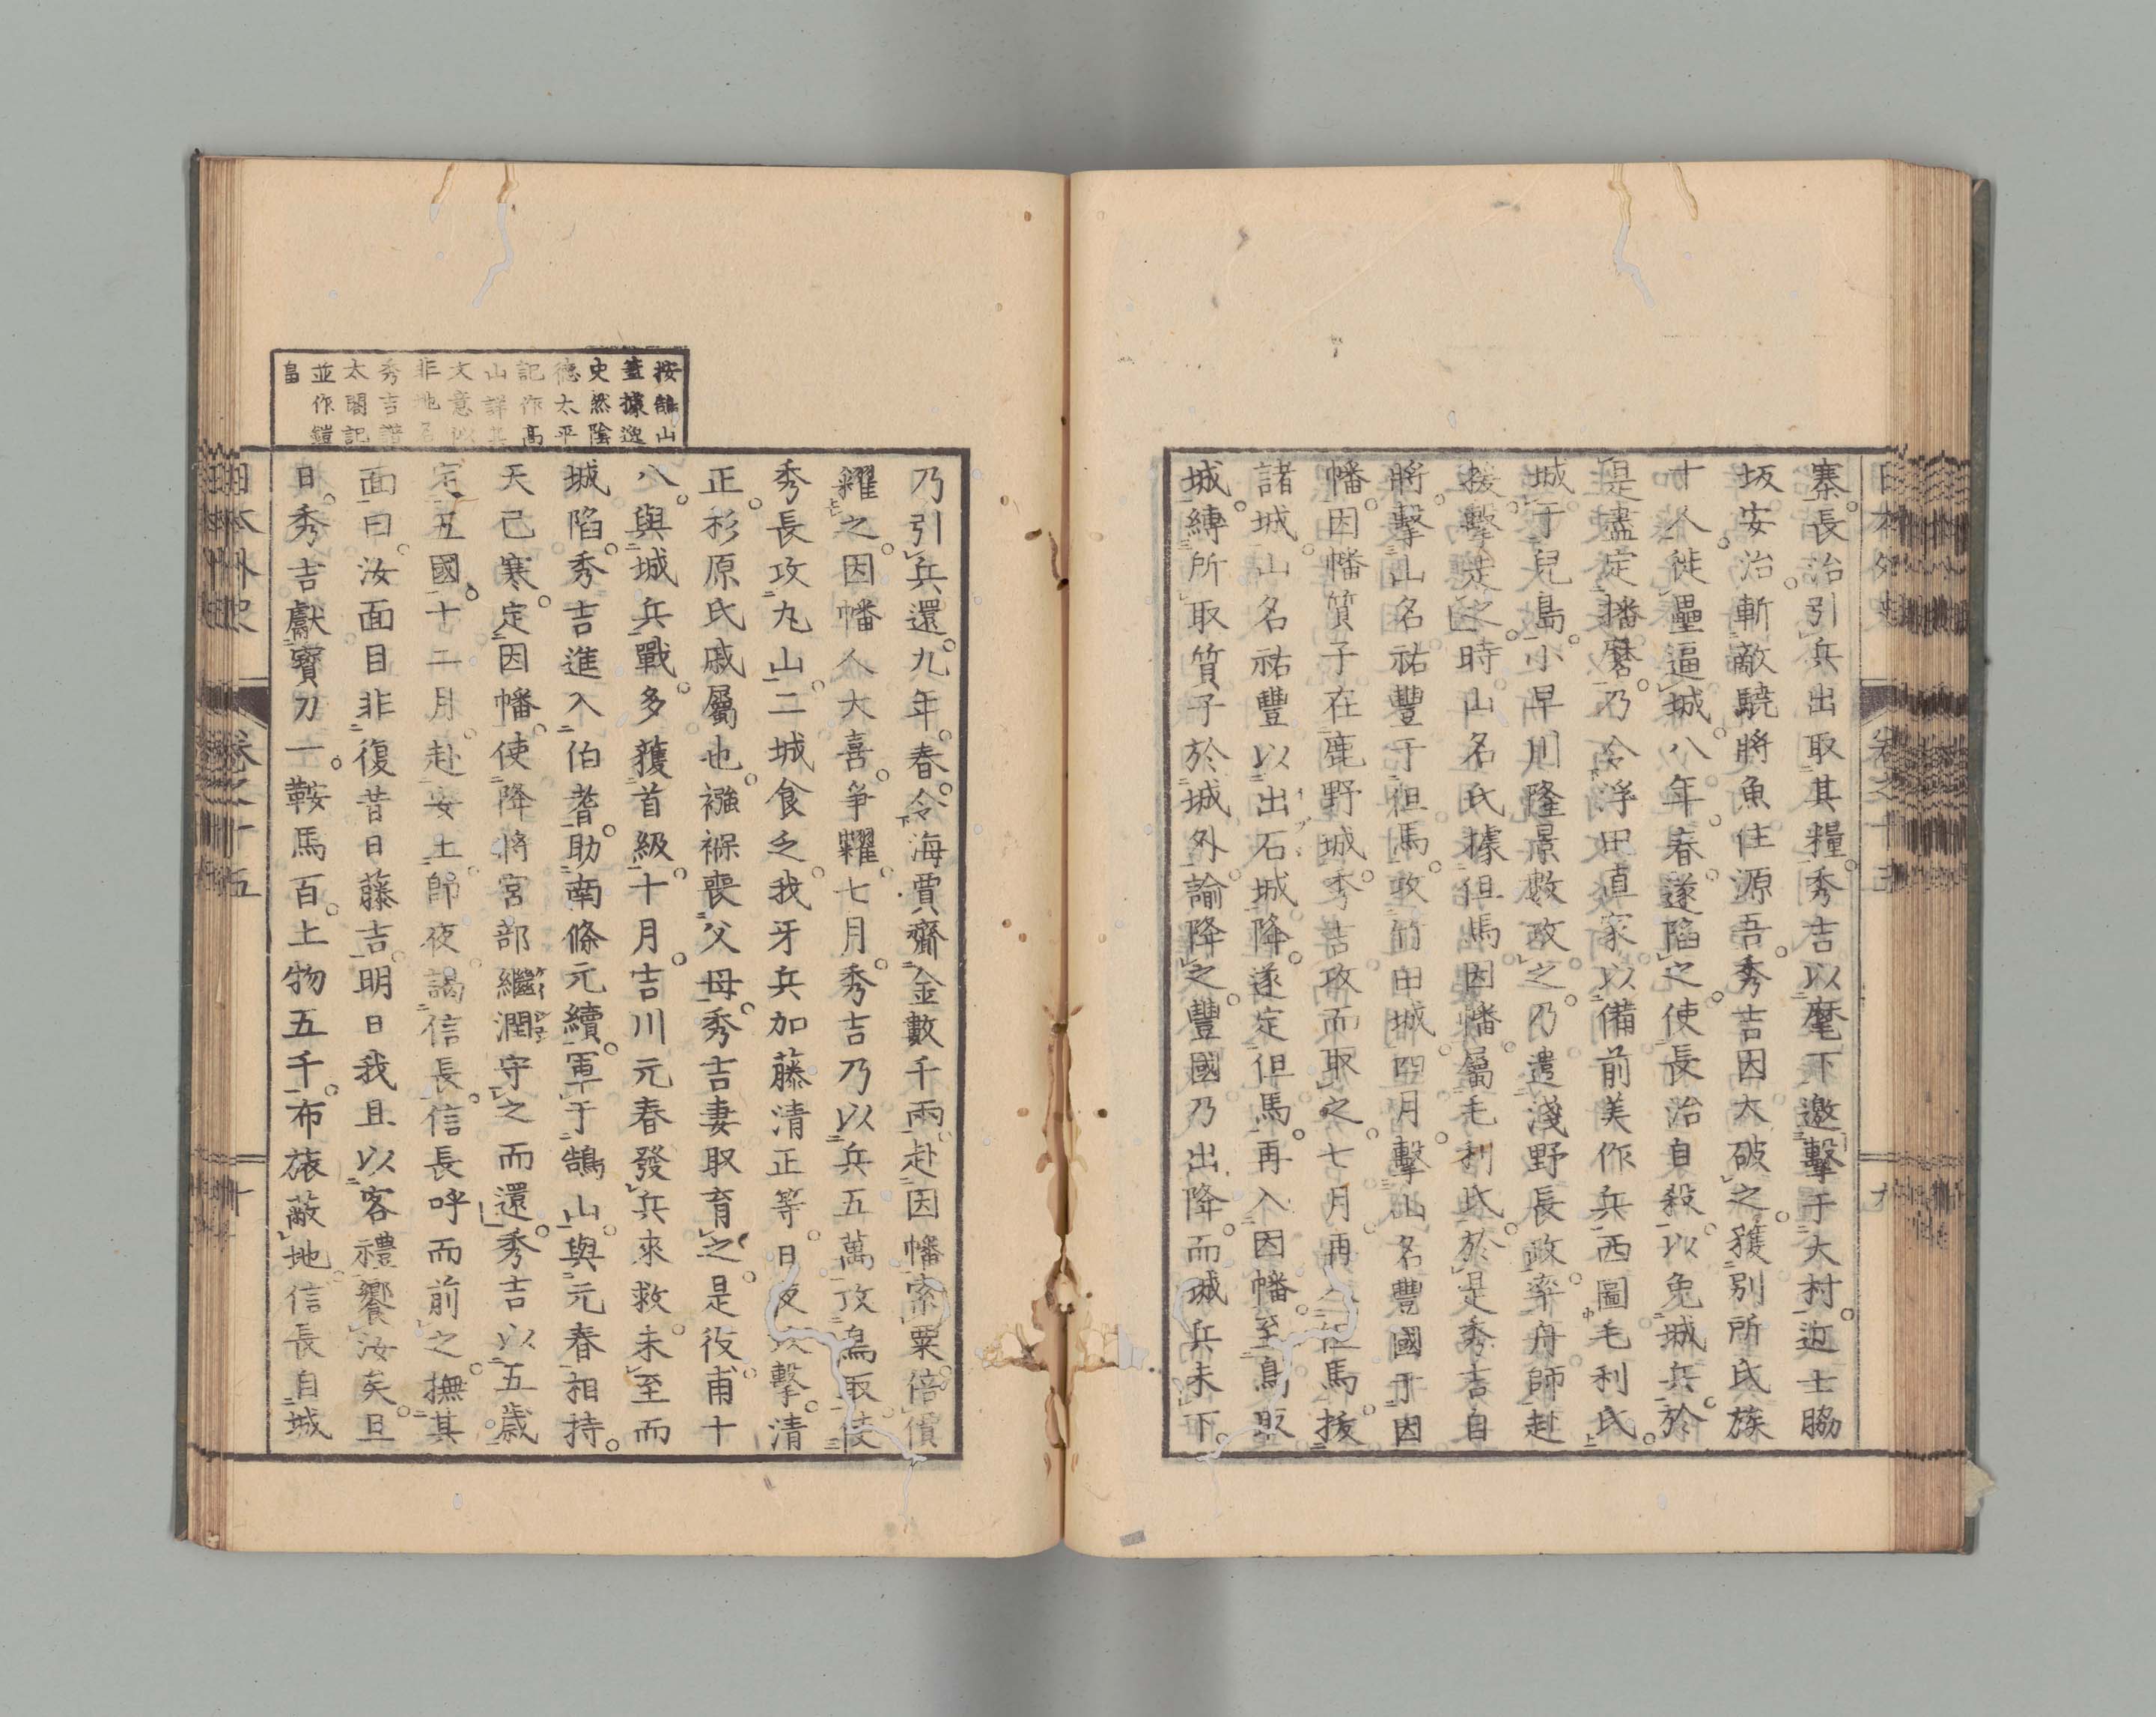 寨長治引兵出取其糧秀吉以麾下邀擊于大村近士脇
坂安治斬敵驍將魚住源吾秀吉因大破之獲別所氏族
十人徙壘逼城八年春遂陷之使長治自殺以免城兵於
是盡定播磨乃令浮田直家以備前美作兵西圖毛利氏
城于兒島小早川隆景數攻之乃遣淺野長政率舟師赴
援擊走之時山名氏據但馬因幡屬毛利氏於是秀吉自
將擊山名祐豐于但馬攻竹田城四月擊山名豐國于因
幡因幡質子在鹿野城秀吉攻而取之七月再入但馬拔
諸城山名祐豐以出石城降遂定但馬再入因幡至鳥取
城縛所取質子於城外諭降之豐國乃出降而城兵未下
乃引兵還九年春令海賈齎金數千兩赴因幡索粟倍價
糴之因幡人大喜爭糶七月秀吉乃以兵五萬攻鳥取使
秀長攻丸山二城食乏我牙兵加藤清正等日夜攻擊清
正杉原氏戚屬也襁褓喪父母秀吉妻取育之是役甫十
八與城兵戰多獲首級十月吉川元春發兵來救未至而
城陷秀吉進入伯耆助南條元續軍于鵠山與元春相持
天已寒定因幡使降將宮部繼潤守之而還秀吉以五歲
定五國十二月赴安土卽夜謁信長信長呼而前之撫其
面曰汝面目非復昔日藤吉明日我且以客禮饗汝矣旦
日秀吉獻寶刀一鞍馬百土物五千布旅蔽地信長自城
按鵠山
蓋據逸
史然陰
德太平
記作高
山詳其
文意似
非地名
秀吉譜
太閤記
並作鎧
畠
日本外史
卷之十五
十